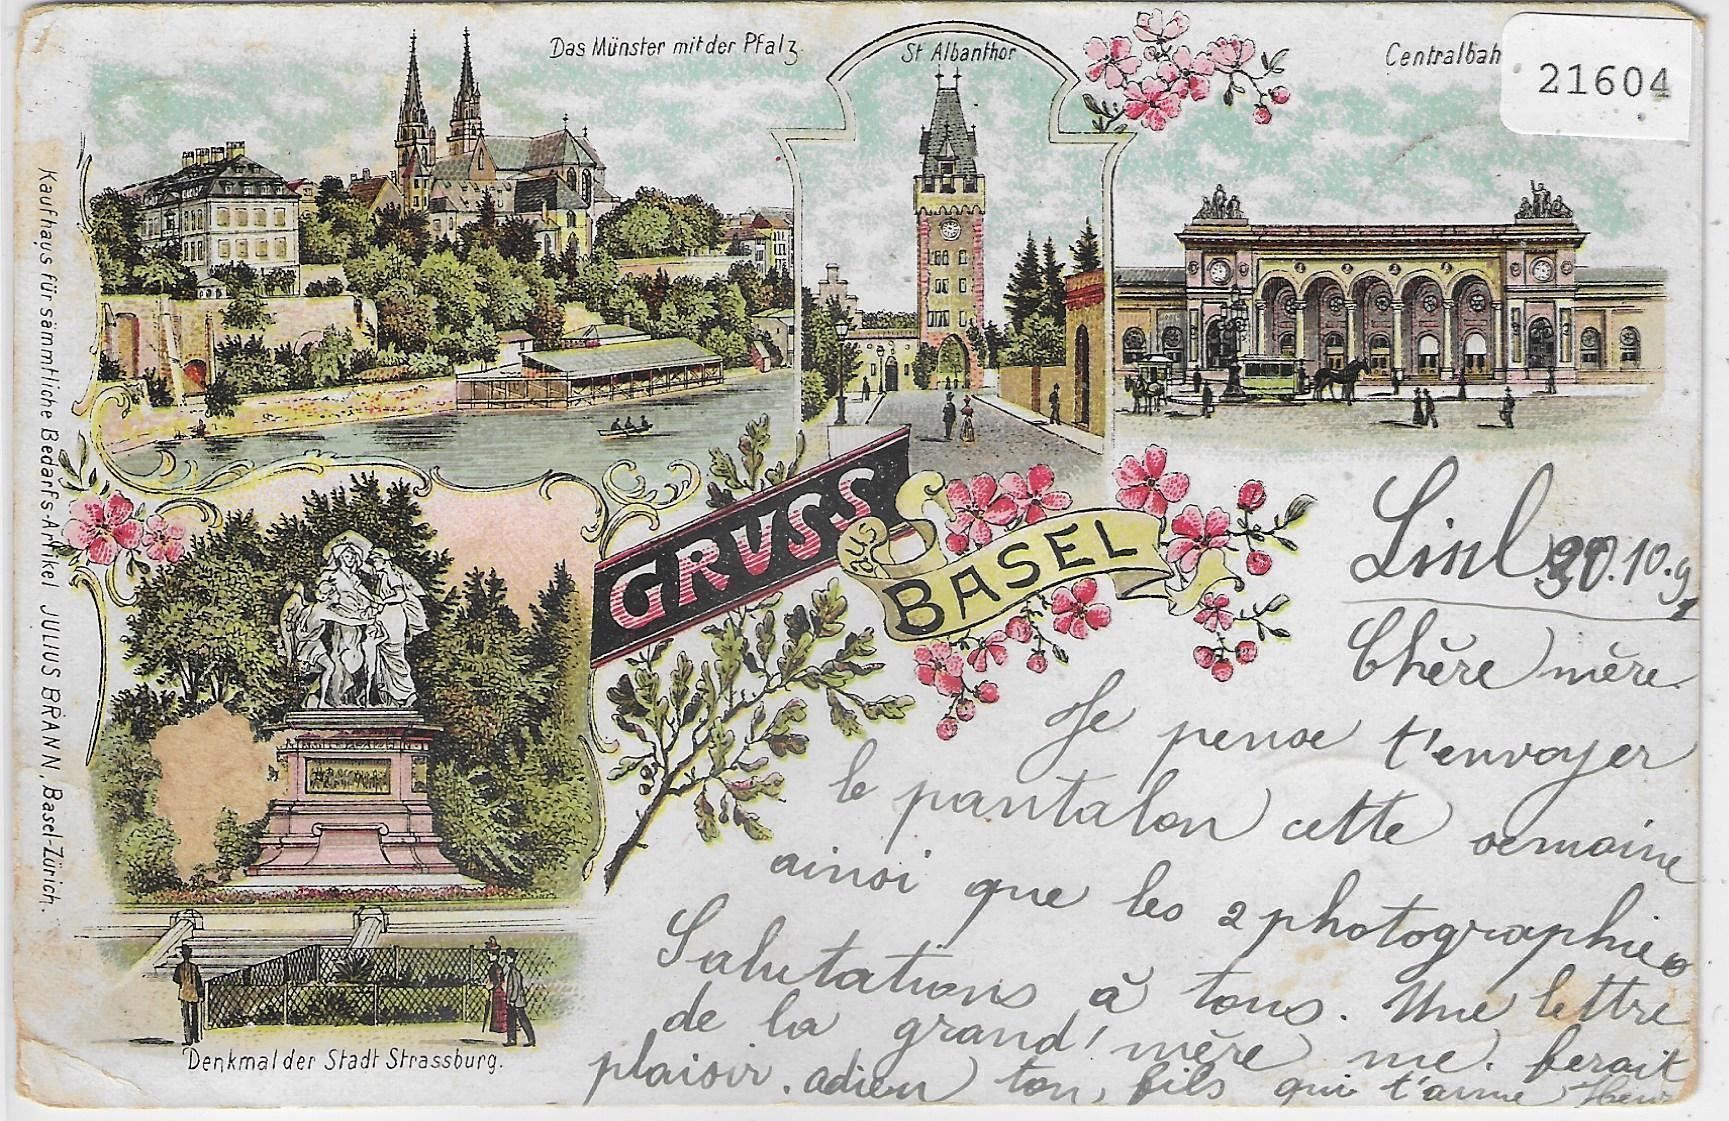 Das Münster mit der Pfalz
St Albanthor
Centralbah
21604
Kaufhaus für sämmtliche Bedarfs-Artikel JULIUS BRANN, Basel-Zürich.
GRUSS
AUS
BASEL
20.10.9
Chère mère
Je pense t'envoyer
le pantalon cette semaine
ainsi que les 2 photographies
Salutations à tous. Une lettre
de la grand'mère me ferait
plaisir. adieu ton fils qui t'aime Henri
Denkmal der Stadt Strassburg.